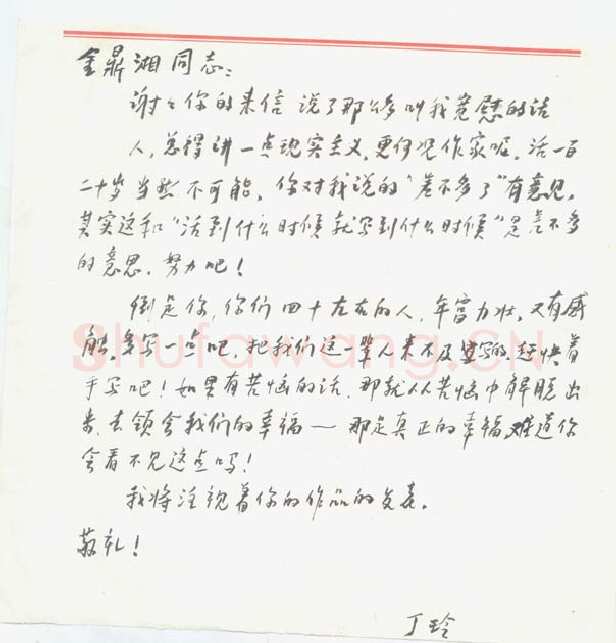 金鼎湘同志：
谢谢你的来信 说了那么多叫我宽慰的话
人，总得讲一点现实主义，更何况作家呢。活一百
二十岁当然不可能，你对我说的"差不多了"有意见，
其实这和"活到什么时候就写到什么时候"是差不多
的意思，努力吧！
倒是你，你们四十左右的人，年富力壮，又有感
触，多写一点吧，把我们这一辈人来不及写的，赶快着
手写吧！如果有苦恼的话，那就从苦恼中解脱出
来，去领会我们的幸福—那是真正的幸福，难道你
会看不见这点吗！
我将注视着你的作品的发表。
敬礼！
丁玲
Shufawang.CN